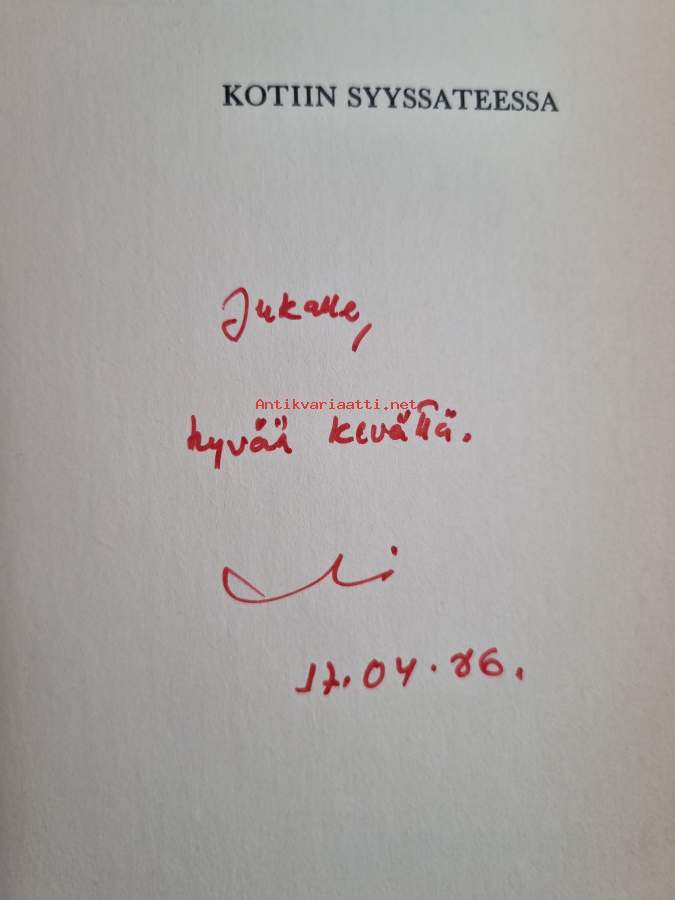 KOTIIN SYYSSATEESSA
Jukalle,
Antikvariaatti.net
hyvää kevättä.
17.04.86.